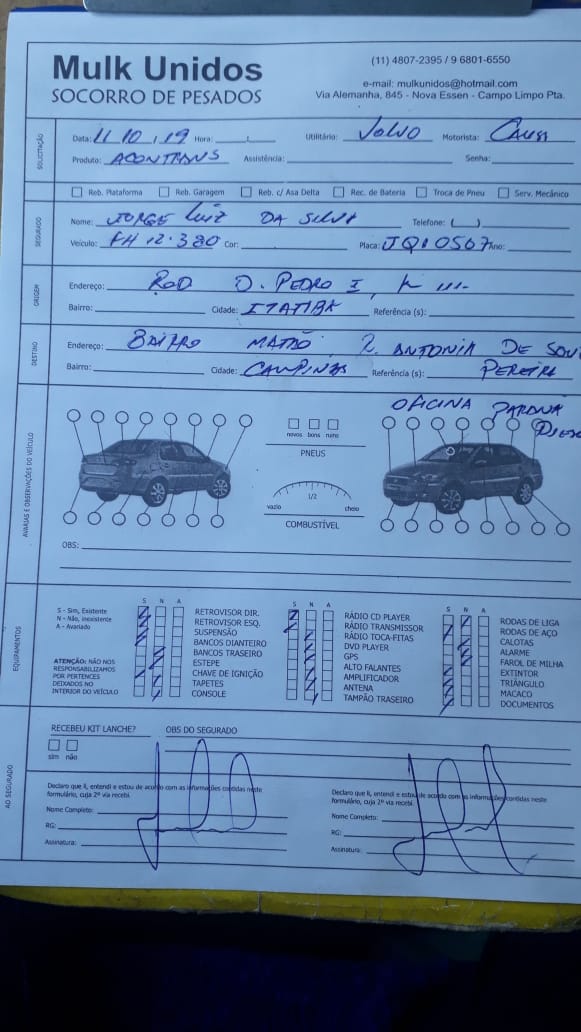 Mulk Unidos
SOCORRO DE PESADOS
(11) 4807-2395 / 9 6801-6550
e-mail: mulkunidos@hotmail.com
Via Alemanha, 845 - Nova Essen - Campo Limpo Pta.
SOLICITAÇÃO
Data: 11 10 19 Hora: Utilitário: Volvo Motorista:
Produto: ACONTRANS Assistência: Senha:
Reb. Plataforma Reb. Garagem Reb. c/ Asa Delta Rec. de Bateria Troca de Pneu Serv. Mecânico
SEGURADO
Nome: JORGE Luiz DA SILVA Telefone: ( )
Veículo: FH 12.380 Cor: Placa: JQI0567 Ano:
ORIGEM
Endereço: ROD D. PEDRO I, K
Bairro: Cidade: ITATIBA Referência (s):
DESTINO
Endereço: BAIRRO MATÃO R. ANTONIA DE SOU
Bairro: Cidade: CAMPINAS Referência (s): PEREIRA
OFICINA
AVARIAS E OBSERVAÇÕES DO VEÍCULO
novos bons ruins
PNEUS
1/2
vazio cheio
COMBUSTÍVEL
OBS:
EQUIPAMENTOS
S - Sim, Existente
N - Não, inexistente
A - Avariado
ATENÇÃO: NÃO NOS
RESPONSABILIZAMOS
POR PERTENCES
DEIXADOS NO
INTERIOR DO VEÍCULO
S N A
RETROVISOR DIR.
RETROVISOR ESQ.
SUSPENSÃO
BANCOS DIANTEIRO
BANCOS TRASEIRO
ESTEPE
CHAVE DE IGNIÇÃO
TAPETES
CONSOLE
S N A
RÁDIO CD PLAYER
RÁDIO TRANSMISSOR
RÁDIO TOCA-FITAS
DVD PLAYER
GPS
ALTO FALANTES
AMPLIFICADOR
ANTENA
TAMPÃO TRASEIRO
S N A
RODAS DE LIGA
RODAS DE AÇO
CALOTAS
ALARME
FAROL DE MILHA
EXTINTOR
TRIÂNGULO
MACACO
DOCUMENTOS
AO SEGURADO
RECEBEU KIT LANCHE?
sim não
OBS DO SEGURADO
Declaro que li, entendi e estou de acordo com as informações contidas neste
formulário, cuja 2ª via recebi.
Nome Completo:
RG:
Assinatura:
Declaro que li, entendi e estou de acordo com as informações contidas neste
formulário, cuja 2ª via recebi.
Nome Completo:
RG:
Assinatura: